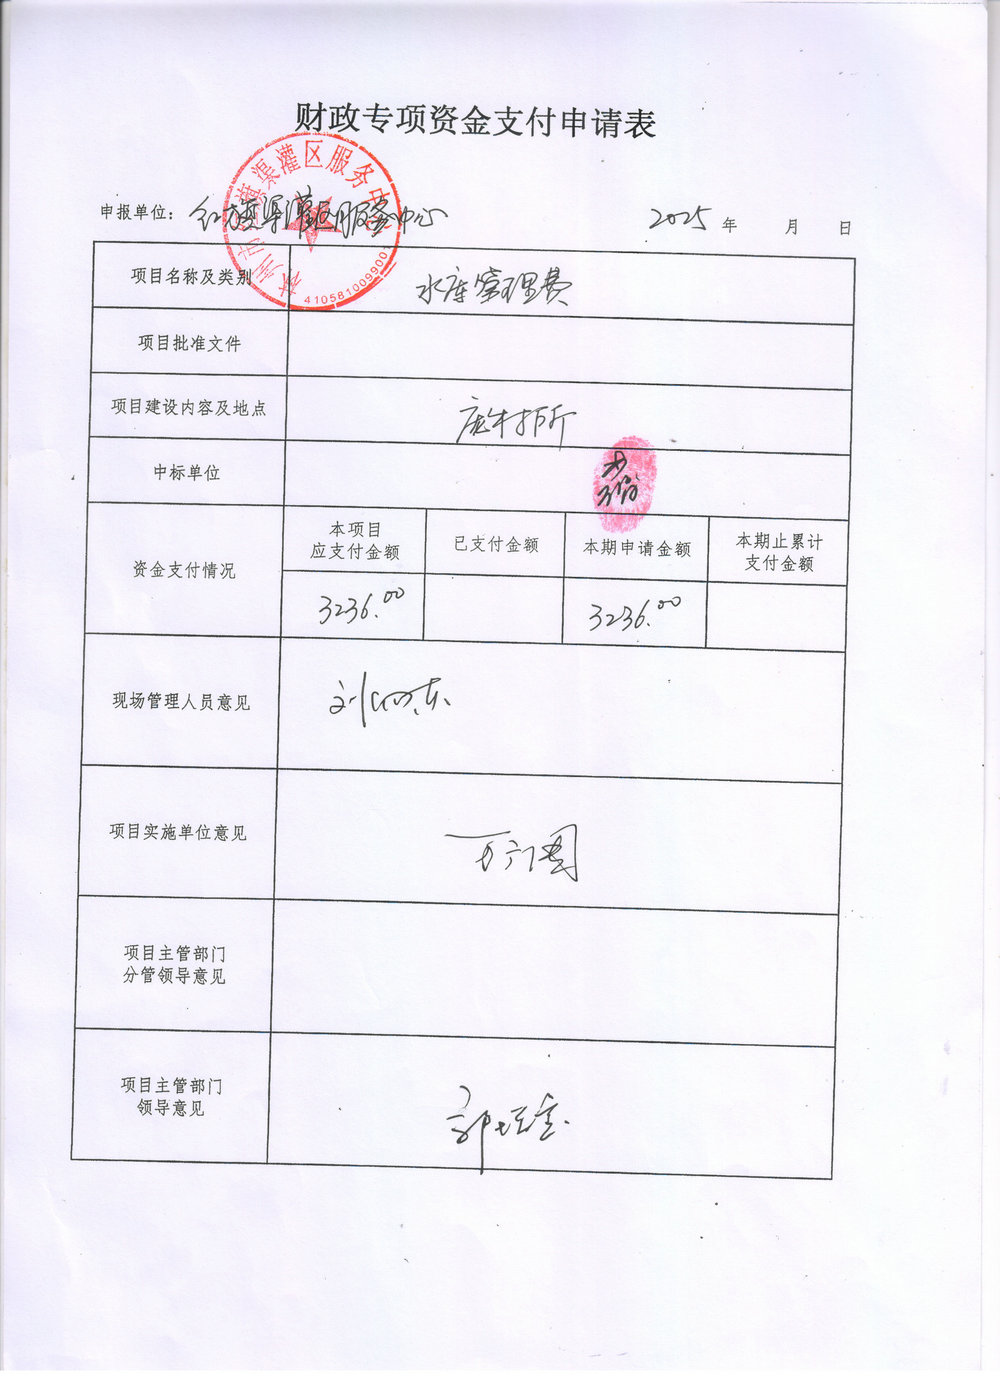 财政专项资金支付申请表
林州市红旗渠灌区服务中心
4105810099001
申报单位： 红旗渠灌区服务中心 2025 年 月 日
项目名称及类别 水库管理费
项目批准文件
项目建设内容及地点
中标单位
资金支付情况
本项目
应支付金额
已支付金额
本期申请金额
本期止累计
支付金额
3236.00
3236.00
现场管理人员意见
项目实施单位意见
项目主管部门
分管领导意见
项目主管部门
领导意见